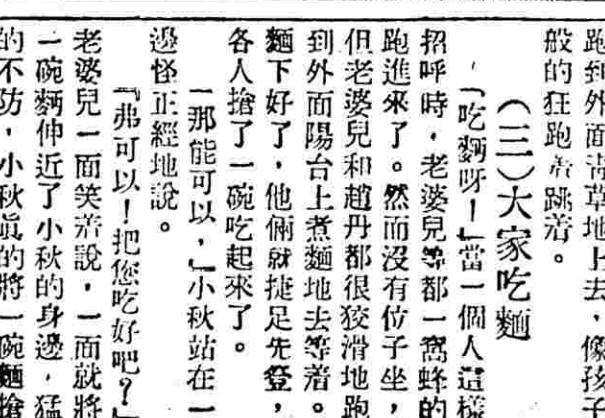 跑到外面青草地上去，像孩子
般的狂跑着跳着。
（三）大家吃麵
「吃麵呀！」當一個人這樣
招呼時，老婆兒等都一窩蜂的
跑進來了。然而沒有位子坐，
但老婆兒和趙丹都很狡滑地跑
到外面陽台上煮麵地去等着。
麵下好了，他倆就捷足先登，
各人搶了一碗吃起來了。
「那能可以，」小秋站在一
邊怪正經地說。
「弗可以！把您吃好吧？」
老婆兒一面笑着說，一面就將
一碗麵伸近了小秋的身邊，猛
的不防，小秋眞的將一碗麵搶